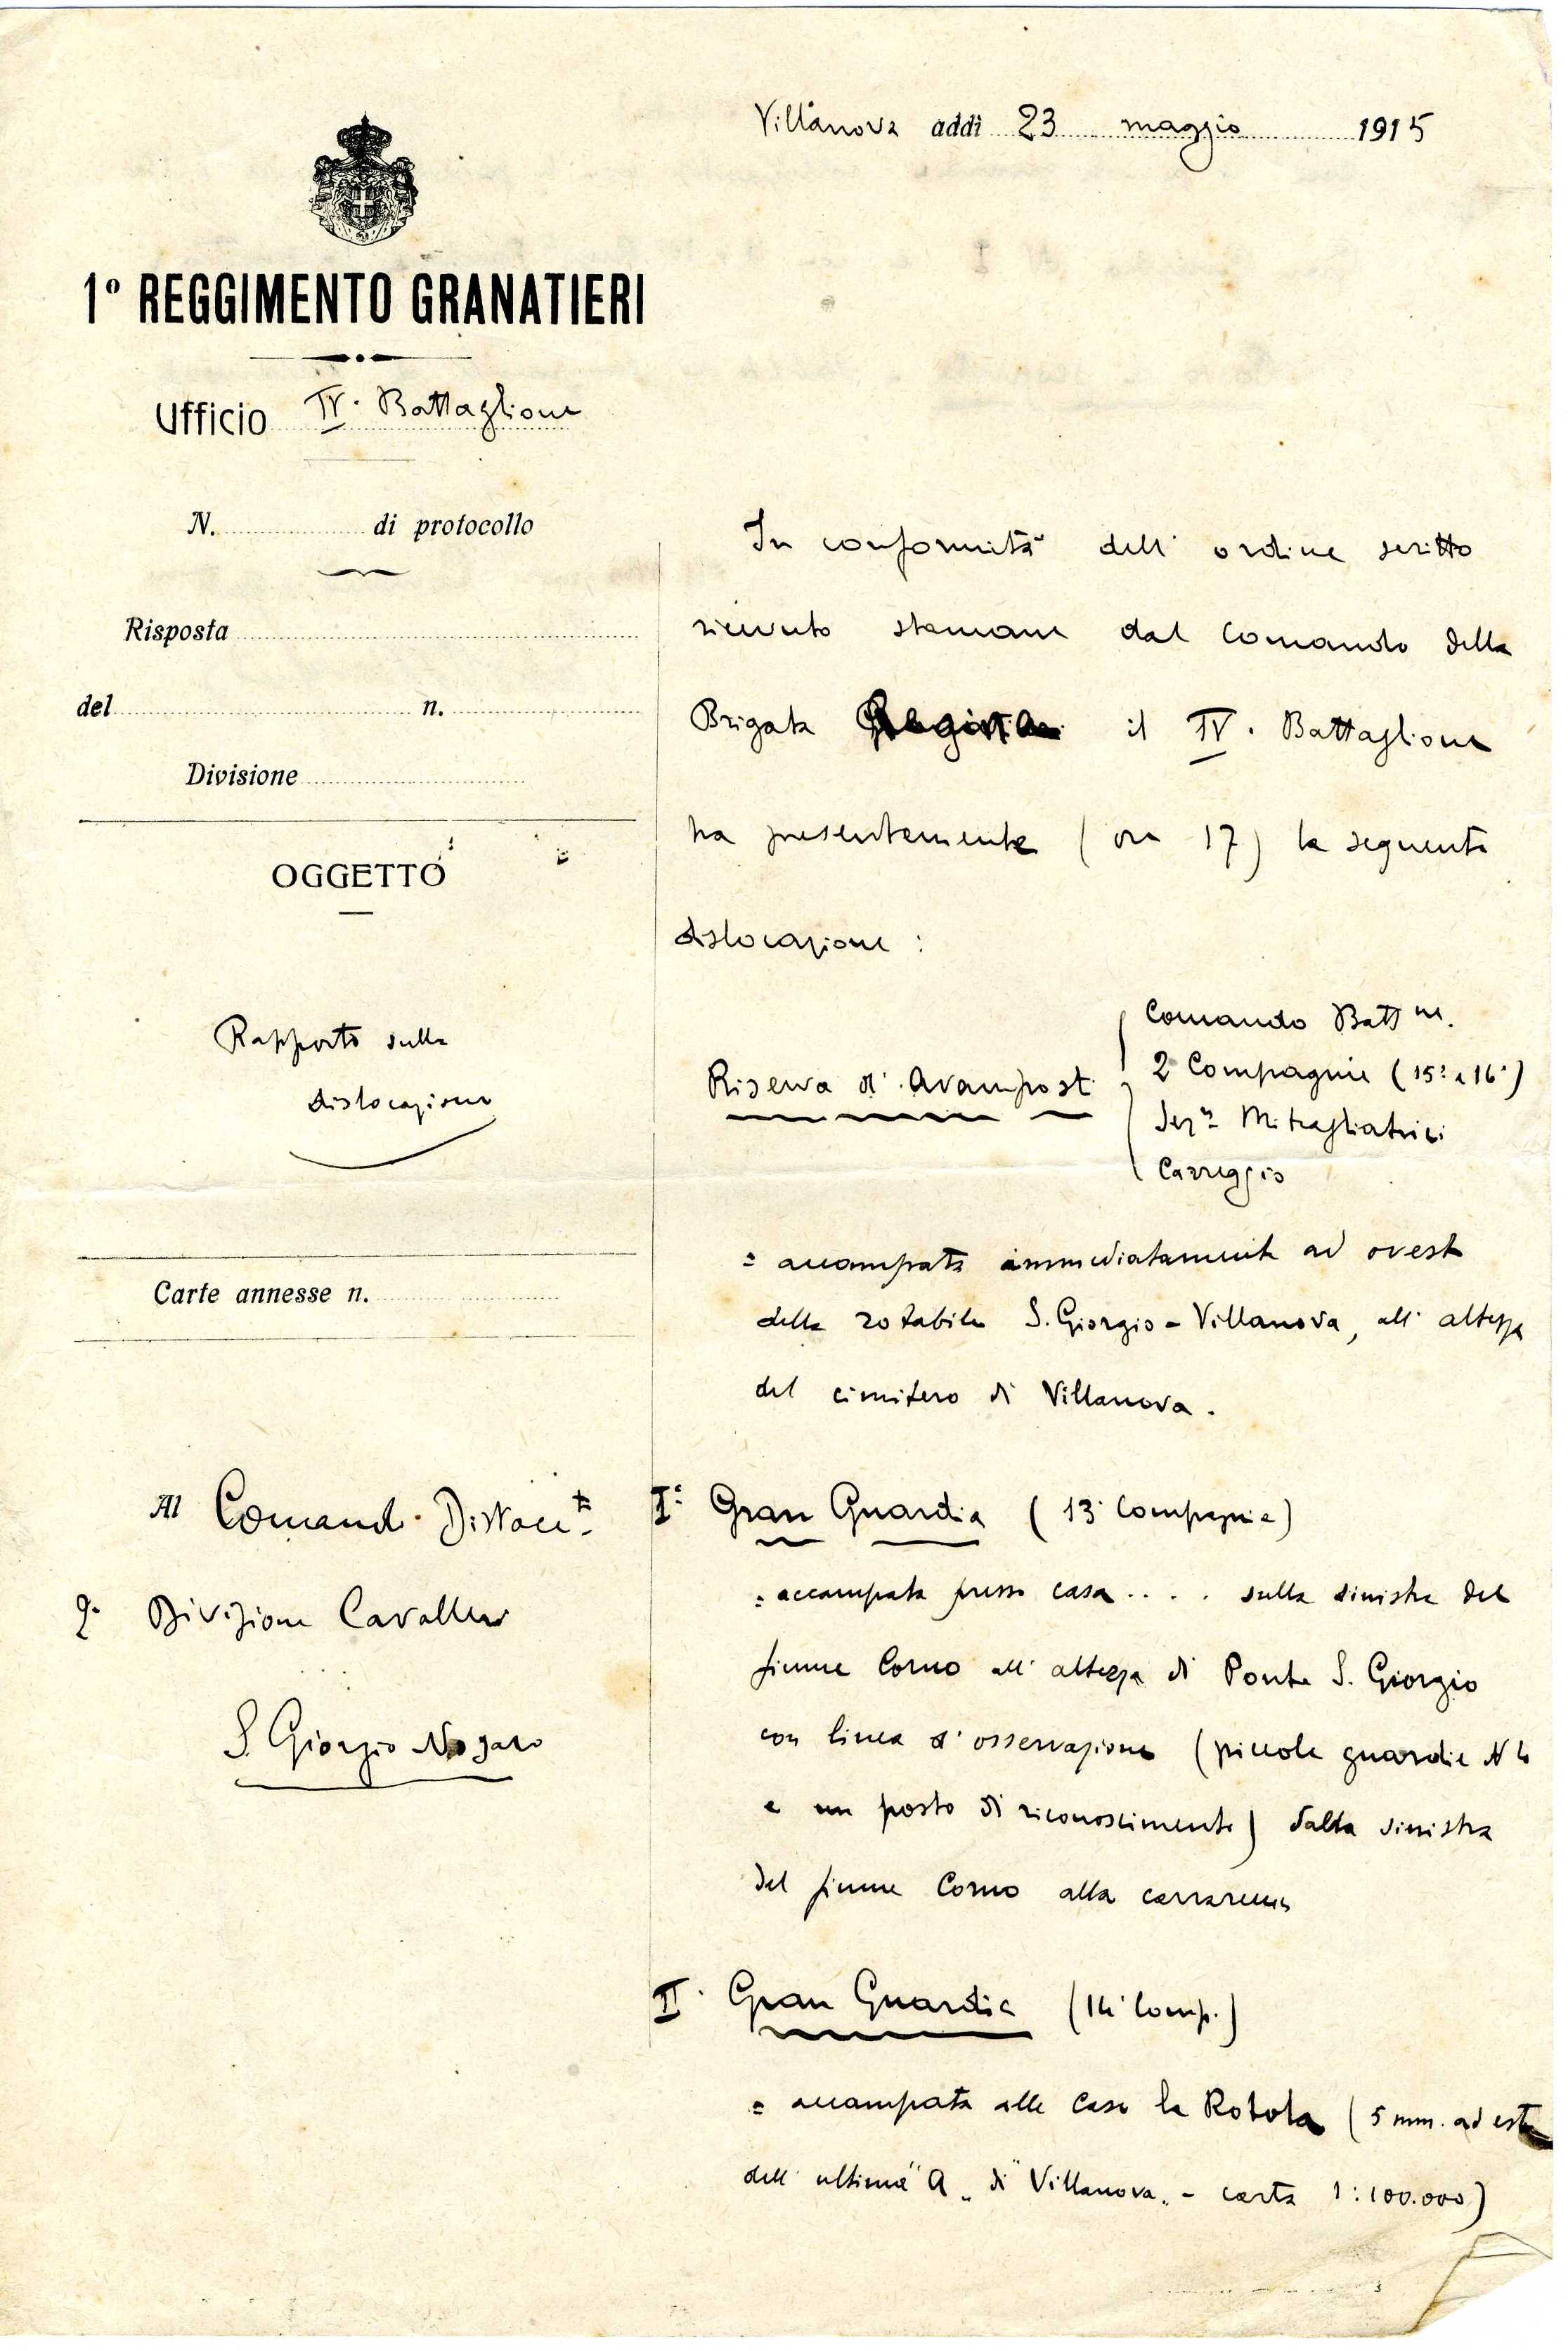 Villanova addì 23 maggio 1915
1º REGGIMENTO GRANATIERI
Ufficio IV. Battaglione
N. di protocollo
Risposta
del n.
Divisione
OGGETTO
Rapporto sulla
dislocazione
Carte annesse n.
Al Comando Distacc.to
2ª Divisione Cavalleria
S. Giorgio Nogaro
In conformità dell' ordine scritto
ricevuto stamane dal Comando della
Brigata il IV. Battaglione
ha presentemente (ore 17) la seguente
dislocazione :
Riserva d' Avamposti
Comando Batt.ne
2 Compagnie (15ª e 16ª)
Sez.ne Mitragliatrici
Carreggio
= accampata immediatamente ad ovest
della rotabile S. Giorgio - Villanova, all' altezza
del cimitero di Villanova.
Iª Gran Guardia (13ª Compagnia)
= accampata presso casa . . . . sulla sinistra del
fiume Corno all' altezza di Ponte S. Giorgio
con linea d' osservazione (piccole guardie N 4
e un posto di riconoscimento) dalla sinistra
del fiume Corno alla carrareccia
II. Gran Guardia (14ª Comp.)
= accampata alle Case la Rotola (5 mm. ad est
dell' ultima "A" di "Villanova" - carta 1:100.000)